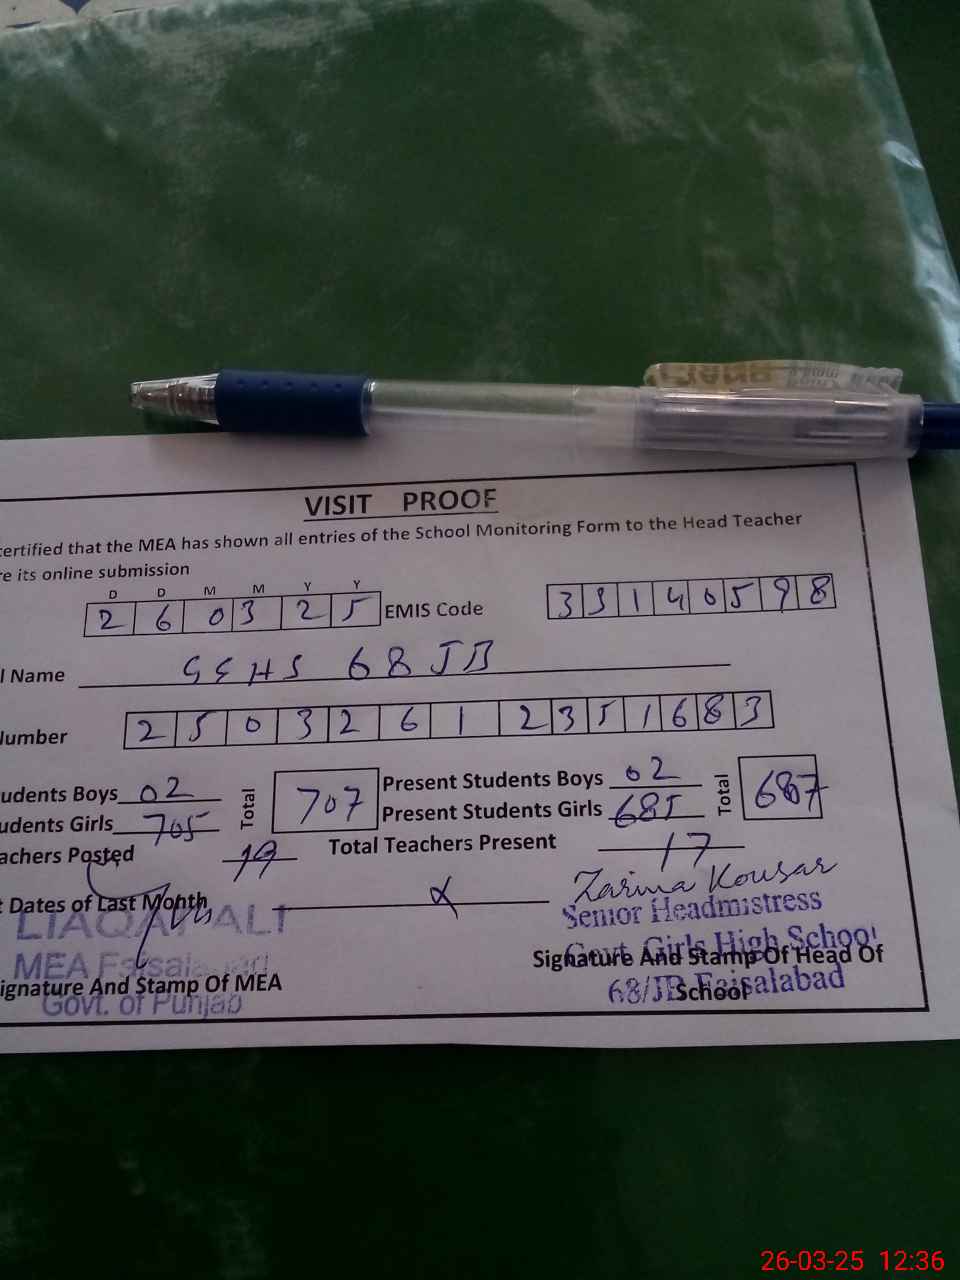 VISIT PROOF
certified that the MEA has shown all entries of the School Monitoring Form to the Head Teacher
re its online submission
D D M M Y Y
2 6 0 3 2 5 EMIS Code 3 3 1 4 0 5 9 8
l Name GGHS 68 JB
Number 2 5 0 3 2 6 1 2 3 5 1 6 8 3
udents Boys 02 Total 707 Present Students Boys 02 Total 687
udents Girls 705 Present Students Girls 685
achers Posted 19 Total Teachers Present 17
t Dates of Last Month
Zarina Kousar
LIAQAT ALI
Senior Headmistress
MEA Faisalabad
Govt. Girls High School
Signature And Stamp Of Head Of
School
ignature And Stamp Of MEA
68/JB Faisalabad
Govt. of Punjab
26-03-25 12:36